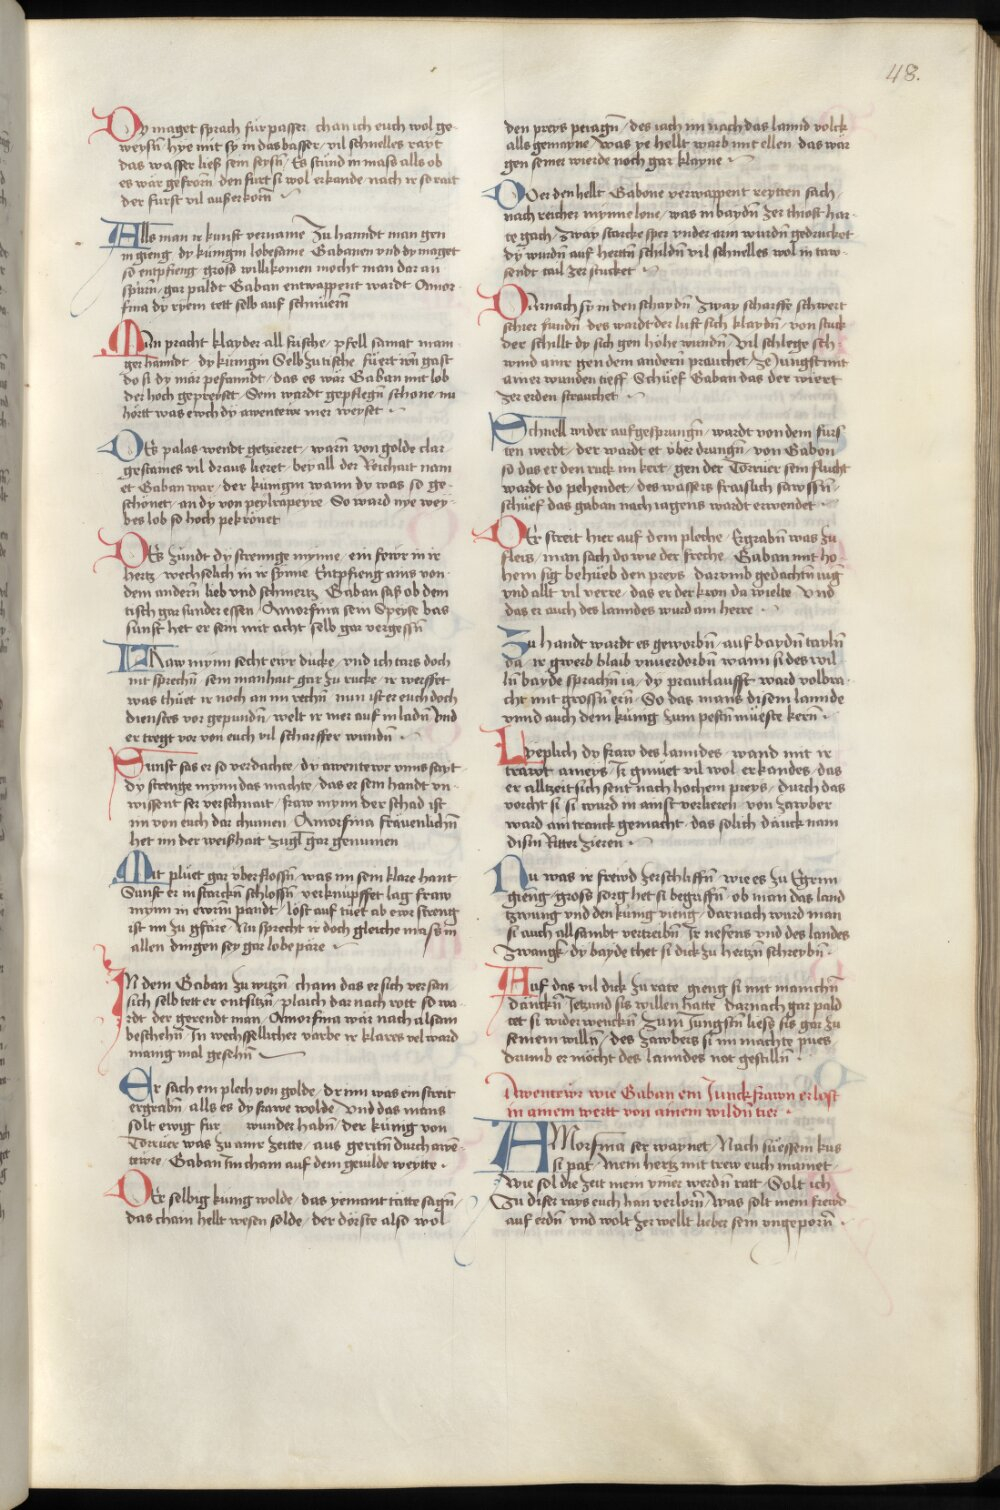 48.
Dy maget sprach fürpasser / chan ich euch wol ge-
weysñ / hye mit sy in das basser / vil schnelles rayt
das wasser ließ sein seysñ / Es stünd in masd alls ob
es wär gefrorñ / den furt si wol erkande / nach ir so rait
der fürst vil außerkorñ
Alls man ir kunft vername / Zu hanndt man gen
in gieng / dy künigin lobesame / Gabanen vnd dy maget
so entpfieng / grosd willikomen mocht man dar an
spürñ / gar paldt Gaban entwappent wardt / Amor-
fina dy ryem tett selb auf schnüerñ
Man pracht klayder all frische / pfell samat man-
ger hanndt / dy künigin Selb zu tische / fuert irñ gast
do si dy mär pefanndt / das es wär Gaban mit lob
der hoch gepreyset / Sein wardt gepflegñ schone / nu
hörtt was ewch dy awentewr mer weyset
Des palas wendt getzieret / warñ von golde clar
gestaines vil draus zieret / bey all der Reichait nam
er Gaban war / der künigin wann dy was so ge-
schönet / an dy von peylrapeyre / So ward nye wey-
bes lob so hoch pekrönet
Des zündt dy strennge mynne / ein fewr in ir
hertz / wechselich in ir synne / Entpfieng ains von
dem andern lieb vnd schmertz / Gaban saß ob dem
tisch gar sunder essen / Amorfina sein Speyse bas
sunst het er sein mit acht selb gar vergessñ
FRaw mynn secht ewr dücke / vnd ich tars doch
nit sprechñ / sein manhait gar zu rucke / ir werffet
was thuet ir noch an im rechñ / nun ist er euch doch
dienstes vor gepundñ / welt ir mer auf in ladñ / Vnd
er tregt vor von euch vil scharffer wundñ
Sunst sas er so verdachte / dy awentewr vnns sayt
dy strenge mynn das machte / das er sein handt vn-
wissent ser verschnait / fraw mynn der schad ist
im von euch dar chumen / Amorfina fräuenlichñ
het im der weißhait zugl gar genumen
Mit pluet gar vberflossñ / was im sein klare hant
Sunst er in starckñ schlossñ / verknüpffet lag fraw
mynn in ewrm pandt / löst auf tuet ab ewr streng
ist im zu gfäre / Nu sprecht ir doch gleiche mass in
allen dingen sey gar lobepäre
IN dem Gaban zu witzñ / cham das er sich versan
sich selb tett er entsitzñ / plaich dar nach rott so wa-
rdt der gerende man / Amorfina wär nach alsam
beschehñ / In wechssellicher varbe ir klares vel ward
manig mal gesehñ
Er sach ein plech von golde / dr inn was ein streit
ergrabñ / alls es dy frawe wolde / vnd das mans
solt ewig fur wunder habñ / der künig von
Torrüer was zu ainr zeitte / aus geritñ durch awe-
tewre / Gaban Im cham auf dem geuilde weytte
Der selbig künig wolde / das yemant ratte sagñ
das chain hellt wesen solde / der dörste also wol
den preys peiagñ / des iach im nach das lannd volck
alls gemayne / was ye hellt warb mit ellen / das war
gen seiner wierde noch gar klayne
Der den hellt Gabone / verwappent reytten sach
nach reicher mynne lone / was in baydñ zer thiost har-
te gach / zway starcke sper vnder arm wurdñ gedrucket
dy wurdñ auf herttñ schildñ / vil schnelles wol in taw-
sendt tail zerstucket
Darnach sy in den schaydñ / zway scharffe schwert
schier fundñ / des wardt der luft sich klaydñ / von stuck
der schillt dy sich gen höhe wundñ / Vil schlege sch-
wind ainr gen dem andern prauchet / ze Jungst mit
ainer wunden tieff / Schüef Gaban das der wiert
zer erden strauchet
Schnell wider aufgesprungñ / wardt von dem fürs-
ten werdt / der wardt et vber drungñ / von Gabon
so das er den ruck im kert / gen der Torrüer sein flucht
wardt do pehendet / des wassers fraislich sawssñ
schüef das gaban nach iagens wardt erwendet
Der streit hier auf dem pleche / Ergrabñ was zu
fleis / man sach do wie der freche / Gaban mit ho-
hem sig behüeb den preys / darumb gedachtñ iug
vnd allt vil verre / das er der kron da wielte / vnd
das er auch des lanndes wurd ain herre
Zu handt wardt es geworbñ / auf baydñ taylñ
da / ir gwerb blaib vnuerdorbñ / wann si des wil-
lñ bayde sprachñ ia / dy prautlaufft ward volbra-
cht mit grossñ erñ / So das mans disem lannde
vnnd auch dem künig zum pestñ müeste kerñ
Lieplich dy fraw des lanndes / wand mit ir
trawt ameys / Ir gmuet vil wol erkandes / das
er alltzeit sich sent nach hochem preys / durch das
vorcht si si wurd in ainst verlieren / von zawber
ward ain tranck gemacht / das solich däuck nam
dism Ritter zieren
Nu was ir frewd zerschliffñ / wie es zu Egrim
gieng / grosd sorg het si begriffñ / ob man das land
tzwung vnd den künig vieng / darnach ward man
si auch allsambt vertreibñ / Ir nefens vnd des landes
zwangk / dy bayde thet si dick zu hertzñ schreybñ
Auf das vil dick zu rate / gieng si mit manichñ
däncksñ / Jetzund sis willen hatte / darnach gar pald
tet si widerwenckñ / Zum Jungstñ liese sis gar zu
seinem willñ / des zawbers si im machte pues
drumb er möcht des lanndes not gestillñ
Awentewr wie Gaban ein Junckfrawn erlost
in ainem wertt von ainem wildñ tier
AMorfina ser waynet / Nach süessem kus
si pat / mein hertz mit trew euch mainet
wie sol die zeit mein ymer werdñ ratt / Solt ich
Zu diser rays euch han verlorñ / was solt mein frewd
auf erdñ / vnd wolt zer wellt lieber sein vngeporñ